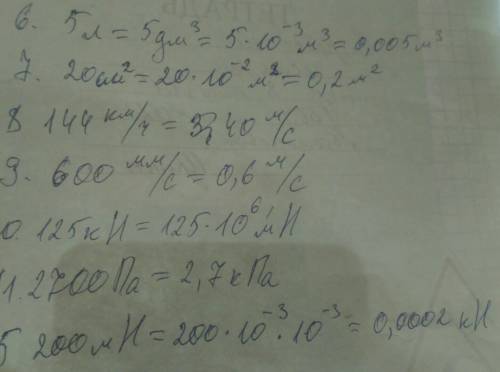 6. 5л = 5дм³ = 5·10⁻³м³ = 0,005м³
7. 20см² = 20·10⁻²м² = 0,2м²
8 144 км/ч = 40 м/с
9. 600 мм/с = 0,6 м/с
0. 125кН = 125·10⁶ мН
1. 2700Па = 2,7кПа
5 200мН = 200·10⁻³·10⁻³ = 0,0002 кН